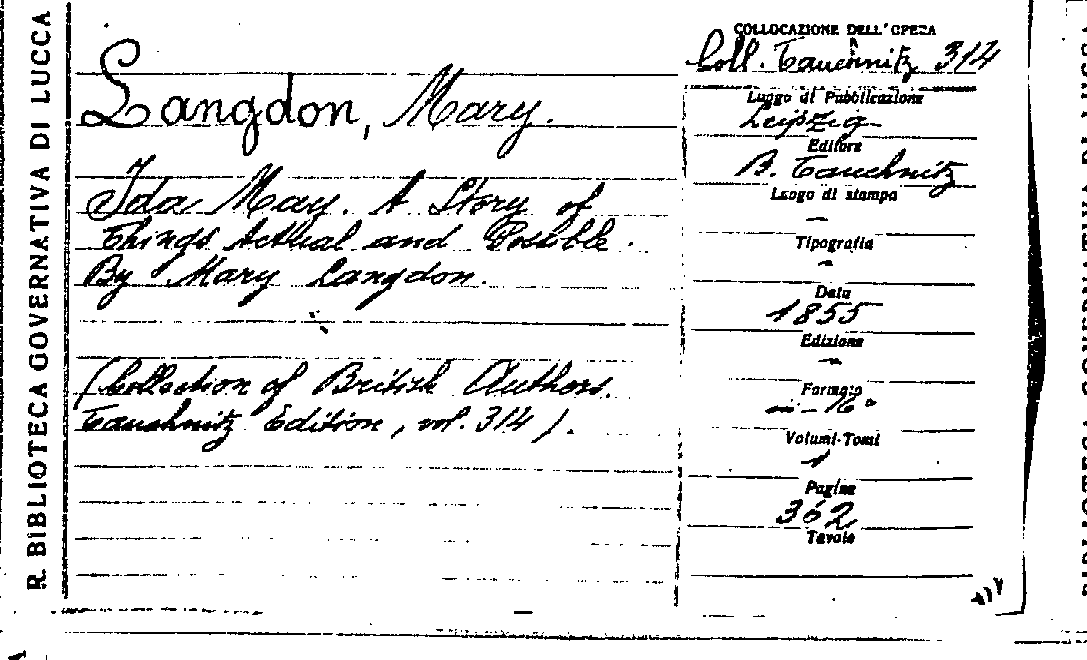 R. BIBLIOTECA GOVERNATIVA DI LUCCA
Langdon, Mary.
Ida May. A Story of
Things Actual and Possible.
By Mary Langdon.
(Collection of British Authors.
Tauchnitz Edition, vol. 314).
COLLOCAZIONE DELL'OPERA
Coll. Tauchnitz 314
Luogo di Pubblicazione
Leipzig
Editore
B. Tauchnitz
Luogo di stampa
—
Tipografia
—
Data
1855
Edizione
—
Formato
in-16°
Volumi-Tomi
1
Pagine
362
Tavole